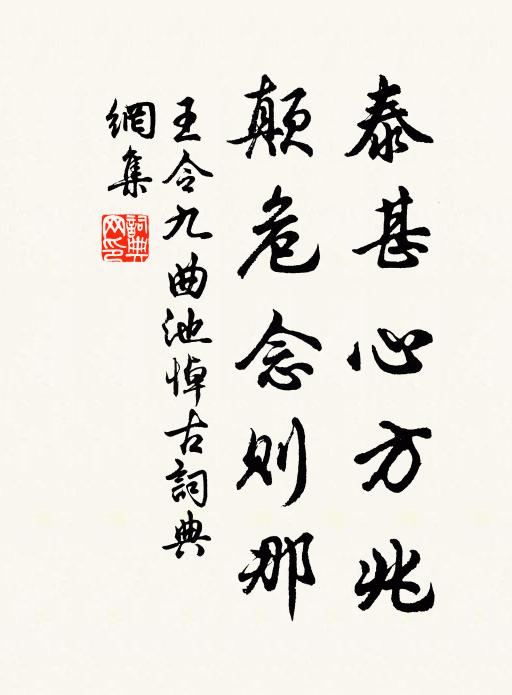 泰甚心方兆
顛危念則那
王令九曲池悼古詞典
網集
詞典網印